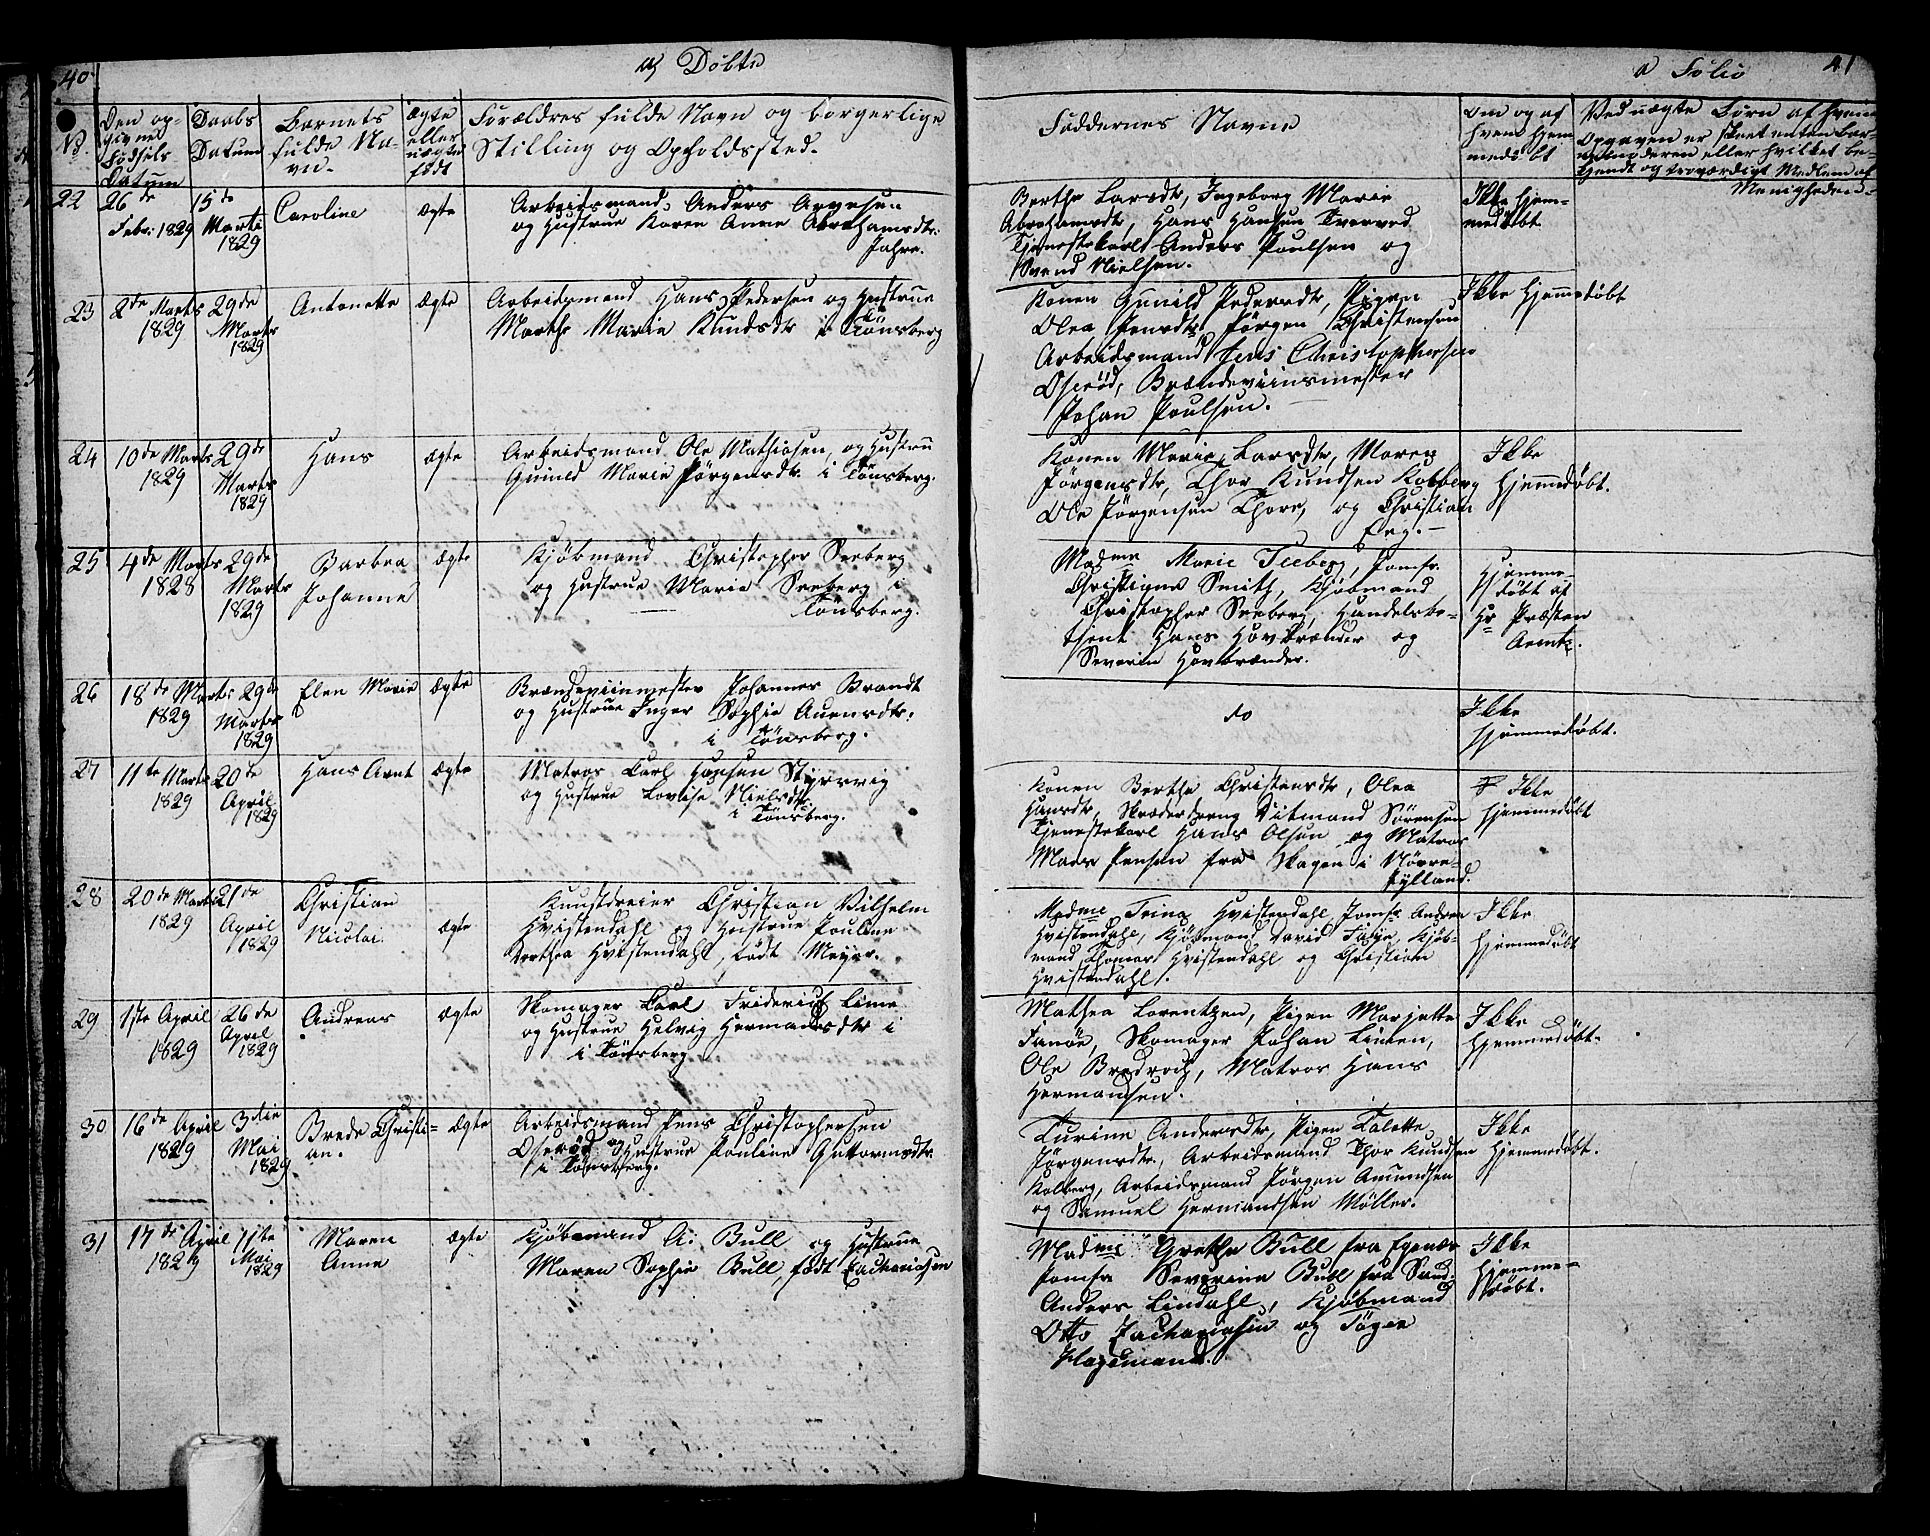 40.
a) Döbte
No
Den op-
givne
Födsels
Datum
Daabs
Datum
Barnets
fulde Na-
vn.
ægte
eller
uægte
født
Forældres fulde Navn og borgerlige
Stilling og Opholdssted.
22
26de
Febr: 1829
15de
Marts
1829
Caroline
ægte
Arbeidsmand, Anders
og Hustrue Karen Anne Abrahamsdtr:
Jahre.
23
2de Marts
1829
29de
Marts
1829
Antonette
ægte
Arbeidsmand Hans Pedersen og Hustrue
Marthe Marie Knudsdtr i Tönsberg
24
10de Marts
1829
29de
Marts
1829
Hans
ægte
Arbeidsmand Ole Mathiasen, og Hustrue
Gunild Marie Jörgensdtr i Tönsberg.
25
4de Marts
1828
29de
Marts
1829
Barbra
Johanne
ægte
Kjöbmand Christopher Seeberg
og Hustrue Marie Seeberg i
Tönsberg.
26
18de Marts
1829
29de
Marts
1829
Elen Marie
ægte
Brændeviinmester Johannes Brandt
og Hustrue Inger Sophie
i Tönsberg.
27
11te Marts
1829
20de
April
1829
Hans Arnt
ægte
Matros Carl Hansen
og Hustrue Lovise Nielsdtr
i Tönsberg.
28
20de Marts
1829
21de
April
1829
Christian
Nicolai.
ægte
Kunstdreier Christian Vilhelm
Hvistendahl og Hustrue Pouline
Dorthea Hvistendahl, født Meyer.
29
1ste April
1829
26de
April
1829
Andreas
ægte
Skomager Carl Friderich Lime
og Hustrue Helvig Hermansdtr i
i Tönsberg
30
16de April
1829
3die
Mai
1829
Brede Christi-
an.
ægte
Arbeidsmand Jens Christophersen
Oseröd og Hustrue Pouline Guttormsdtr
i Tönsberg.
31
17de April
1829
11te
Mai
1829
Maren
Anne
ægte
Kjöbmand A: Bull og Hustrue
Maren Sophie Bull, født Zachariasen
a Folio
41
Faddernes Navne
Om og af
hvem Hjem-
medöbt
Ved uægte Börn af hvem
Opgaven er skeet enten Bar-
nemoderen eller hvilket be-
kjendt og troværdigt Medlem af
Menigheden.
Berthe Larsdtr, Ingeborg Marie
Abrahamsdtr, Hans Hansen Tverved
Tjenestekarl Anders Poulsen og
Svend Nielsen.
Ikke Hjem-
medöbt.
Konen Gunild Pedersdtr, Pigen
Olea Jensdtr Jörgen Christensen
Arbeidsmand Jens Christophersen
Oseröd, Brændeviinsmester
Johan Poulsen.
Ikke Hjemedöbt
Konen Marie Larsdtr, Maren
Jörgensdtr, Thor Knudsen Kolberg
Ole Jörgensen Thore, og Christian
Eeg.
Ikke
Hjemmedöbt.
Madme Marie Seeberg, Jomfr.
Christiane Smith, Kjöbmand
Christopher Seeberg, Handelsbe-
tjent Hans Hovbrænder og
Severin Hovbrænder.
Hjemme-
döbt af
Hr Præsten
Arentz.
do
Ikke
Hjemmedöbt.
Konen Berthe Christensdtr, Olea
Hansdtr, Skræderdreng Ditmand Sörensen
Tjenestekarl Hans Olsen og Matros
Mads Jensen fra Skagen i Nörre-
Jylland.
Ikke
Hjemmedöbt
Madme Trina Hvistendahl, Jomfr Andrea
Hvistendahl, Kjöbmand David Faye, Kjöb-
mand Thomas Hvistendahl og Christian
Hvistendahl.
Ikke
Hjemmedöbt
Mathea Lorentzen, Pigen Marjette
Fanöe, Skomager Johan Limen,
Ole Bredroch, Matros Hans
Hermansen.
Ikke
Hjemmedöbt.
Turine Andersdtr, Pigen Talette
Jörgensdtr, Arbeidsmand Thor Knudsen
Kolberg, Arbeidsmand Jörgen Amundsen
og Samuel Hermandsen Möller.
Ikke
Hjemmedöbt.
Madme Grethe Bull fra Egenæs
Jomfr Severine Bull fra Sand:
Anders Lindahl, Kjöbmand
Otto Zachariasen og Töger
Hagemand.
Ikke
Hjemme-
döbt.